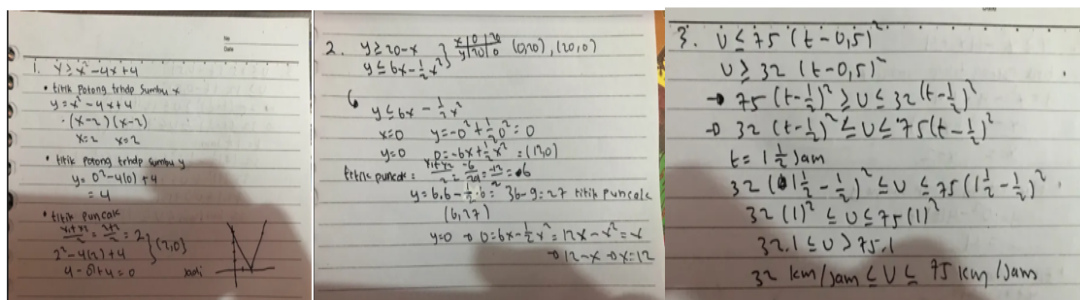 No
Date
1. y ≥ x² - 4x + 4
• titik potong trhdp sumbu x
y = x² - 4x + 4
• (x-2)(x-2)
x=2 x=2
• titik potong trhdp sumbu y
y = 0² - 4(0) + 4
= 4
• titik puncak
(x1+x2)/2 = (2+2)/2 = 2
2² - 4(2) + 4 } (2,0)
4 - 8 + 4 = 0
Jadi
2. y ≥ 20 - x
y ≤ 6x - ½x²
x | 0 | 20
y | 20 | 0
(0,20), (20,0)
y ≤ 6x - ½x²
x=0 y = -0² + ½0² = 0
y=0 0 = -6x + ½x² = (12,0)
titik puncak = (x1+x2)/2 = -6/2a = = 6
y = 6.6 - ½.6² = 36 - 9 = 27 titik puncak
(6,27)
y=0 → 0 = 6x - ½x² = 12x - x² = x
→ 12 - x → x = 12
3. U ≤ 75 (t - 0,5)²
U ≥ 32 (t - 0,5)²
→ 75 (t - ½)² ≥ U ≤ 32 (t - ½)²
→ 32 (t - ½)² ≤ U ≤ 75 (t - ½)²
t = 1 ½ Jam
32 (1½ - ½)² ≤ U ≤ 75 (1½ - ½)²
32 (1)² ≤ U ≤ 75 (1)²
32.1 ≤ U > 75.1
32 km/jam ≤ U ≤ 75 km/Jam